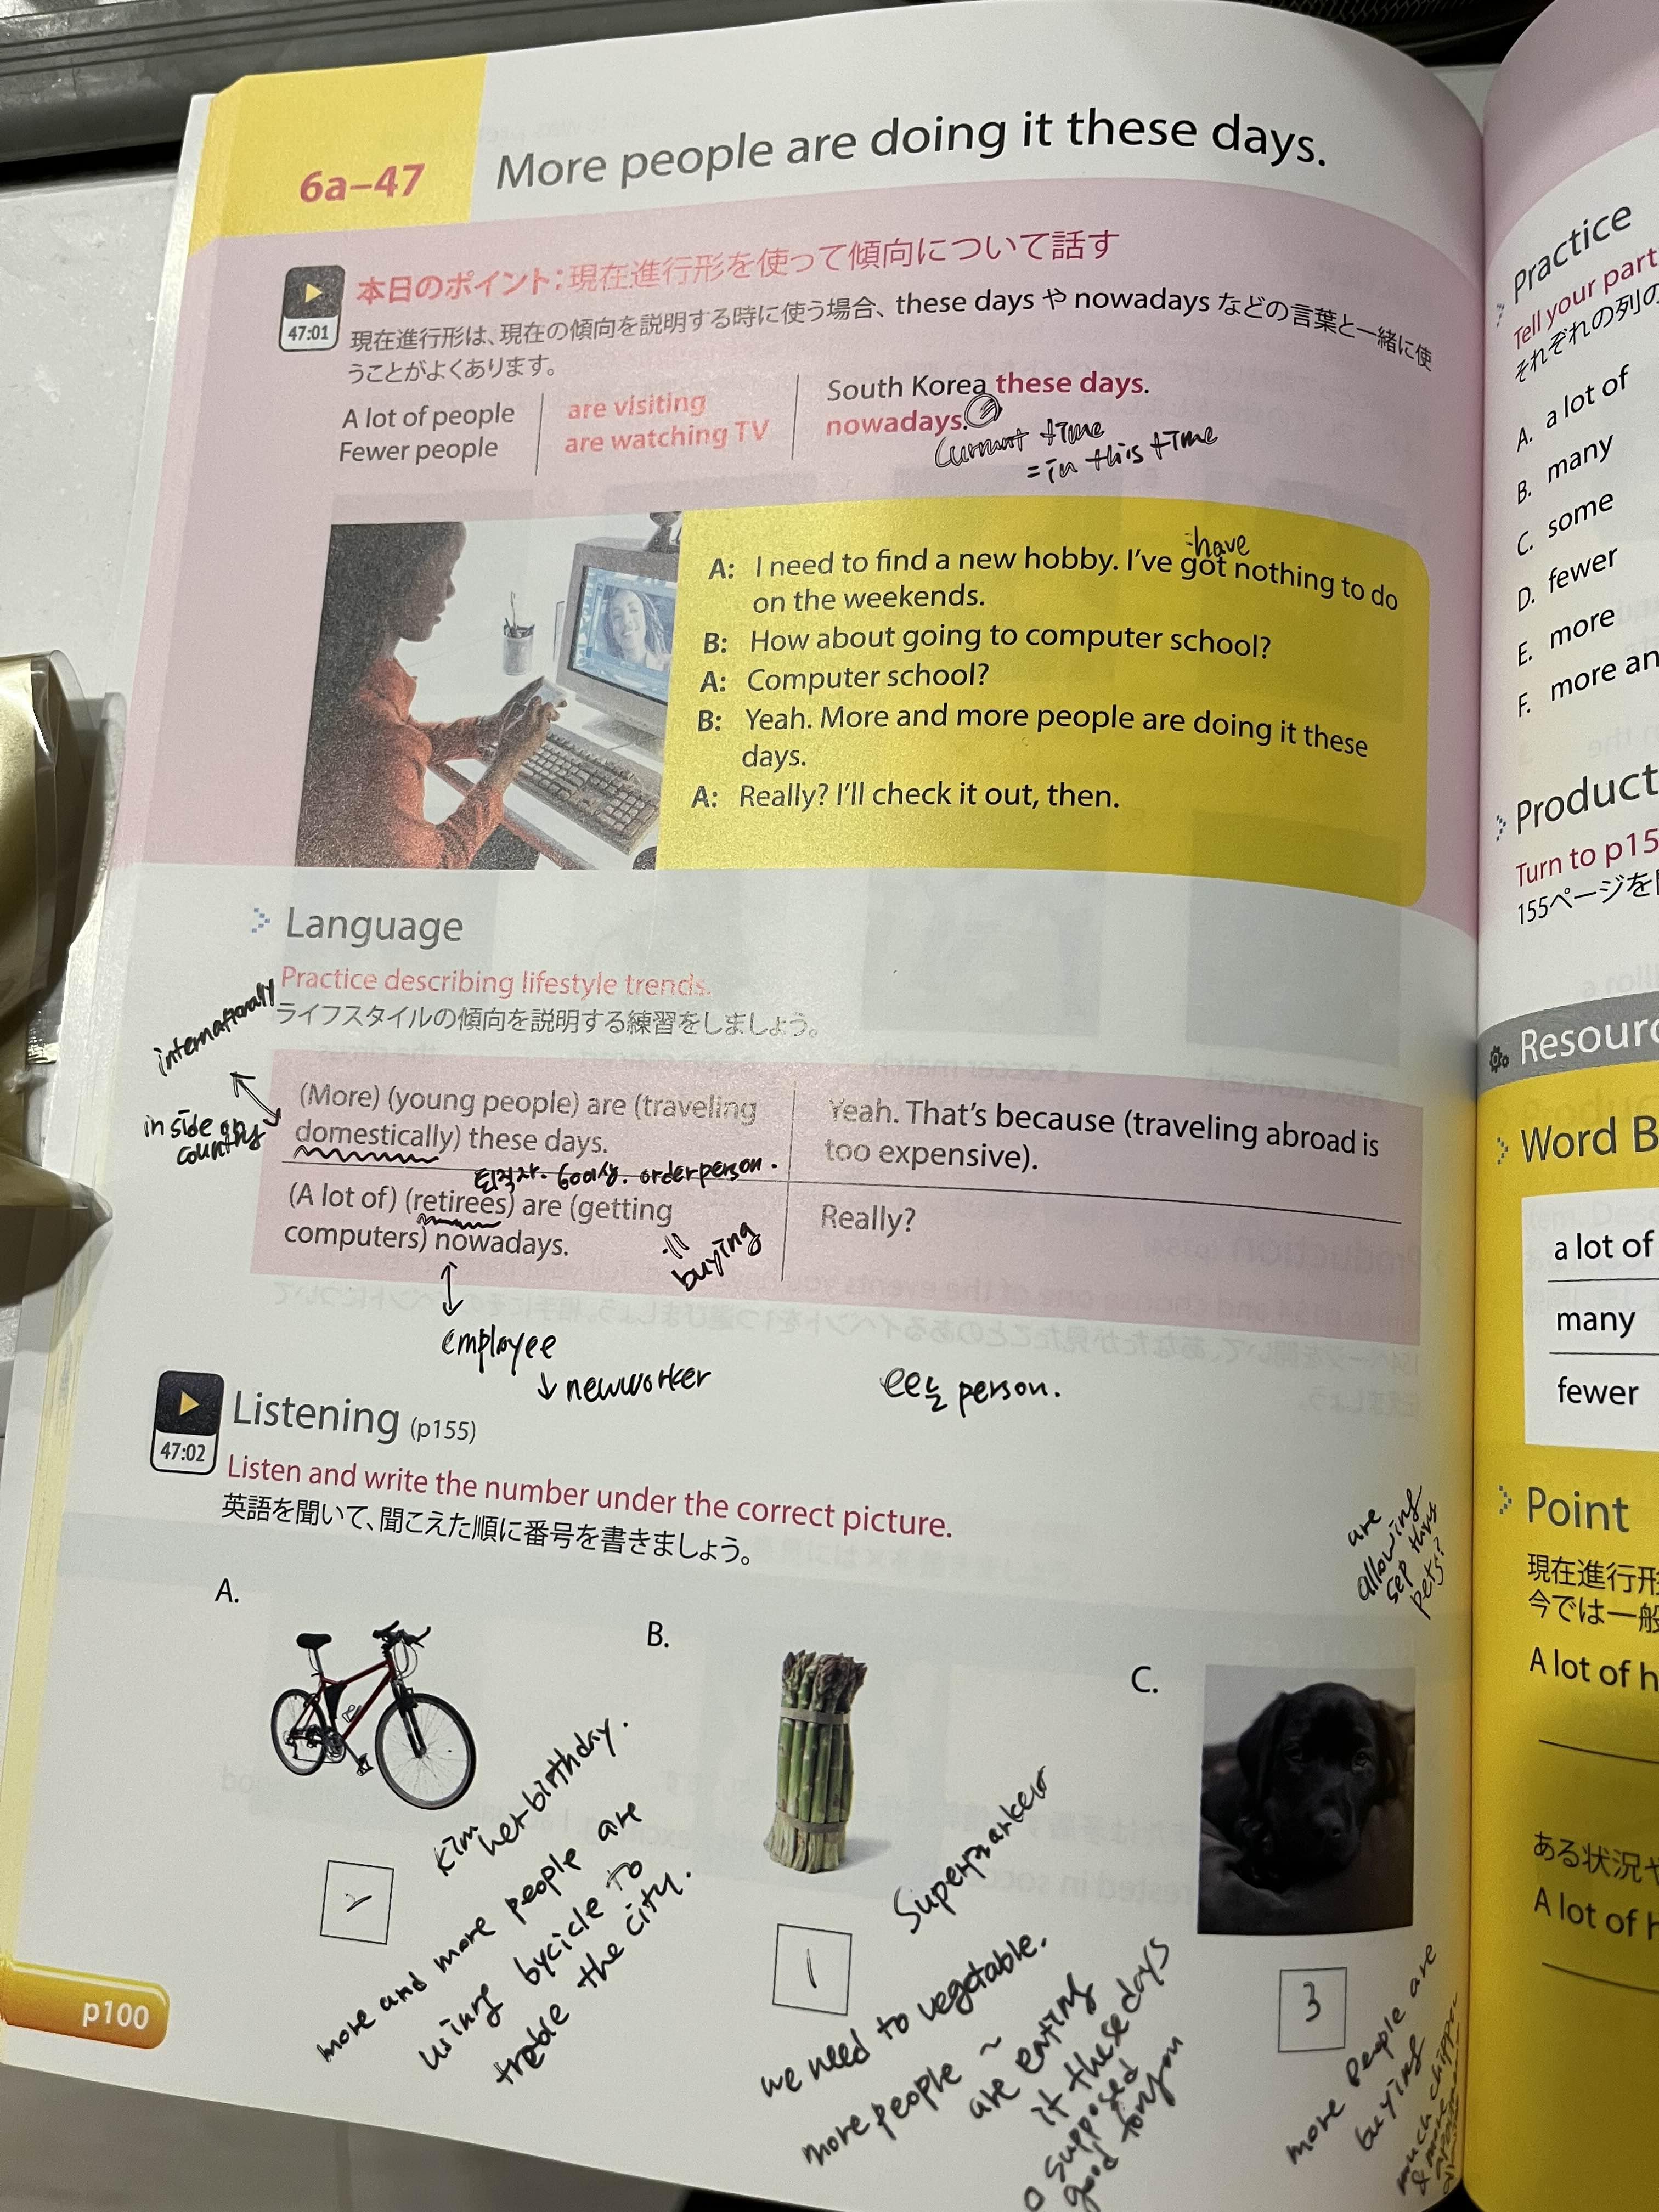 6a–47
More people are doing it these days.
47:01
本日のポイント:現在進行形を使って傾向について話す
現在進行形は、現在の傾向を説明する時に使う場合、these days や nowadays などの言葉と一緒に使
うことがよくあります。
A lot of people
Fewer people
are visiting
are watching TV
South Korea these days.
nowadays.
Current time
= in this time
=have
A: I need to find a new hobby. I've got nothing to do
on the weekends.
B: How about going to computer school?
A: Computer school?
B: Yeah. More and more people are doing it these
days.
A: Really? I'll check it out, then.
Language
Practice describing lifestyle trends.
ライフスタイルの傾向を説明する練習をしましょう。
internationally
inside on
country
(More) (young people) are (traveling
domestically) these days.
Yeah. That's because (traveling abroad is
too expensive).
퇴직자. 60이상. order person.
(A lot of) (retirees) are (getting
computers) nowadays.
Really?
buying
employee
↓ newworker
ee는 person.
47:02
Listening (p155)
Listen and write the number under the correct picture.
英語を聞いて、聞こえた順に番号を書きましょう。
are
allowing
pets?
A.
B.
C.
kim
her birthday.
2
more and more people are
using bycicle to
the city.
Supermarket
1
we need to vegetable.
more people ~
are eating
it these days
supposed
good
3
more people are
buying
p100
Practice
Tell your part
それぞれの列の
A. a lot of
B. many
C. some
D. fewer
E. more
F. more an
Product
Turn to p15
155ページを
Resourc
Word B
a lot of
many
fewer
Point
現在進行形
今では一般
A lot of h
ある状況や
A lot of h